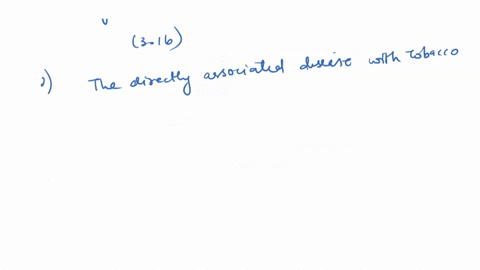 (3.16)
2) The directly associated disease with Tobacco